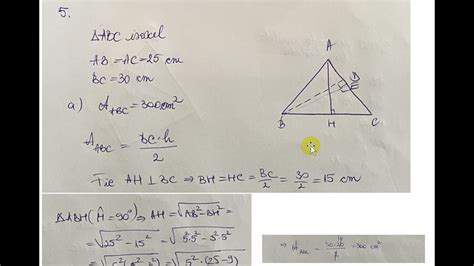 5.
ΔABC isoscel
AB = AC = 25 cm
BC = 30 cm
a) A_ABC = 300 cm²
A_ABC = BC·h / 2
Fie AH ⊥ BC ⇒ BH = HC = BC/2 = 30/2 = 15 cm
A
D
E
B
H
C
ΔABH (Ĥ = 90°) ⇒ AH = √(AB² − BH²) =
= √(25² − 15²) = √(5²·5² − 3²·5²)
= √(5²(5² − 3²)) = √(5²·(25 − 9))
⇒ A_ABC = = 300 cm²